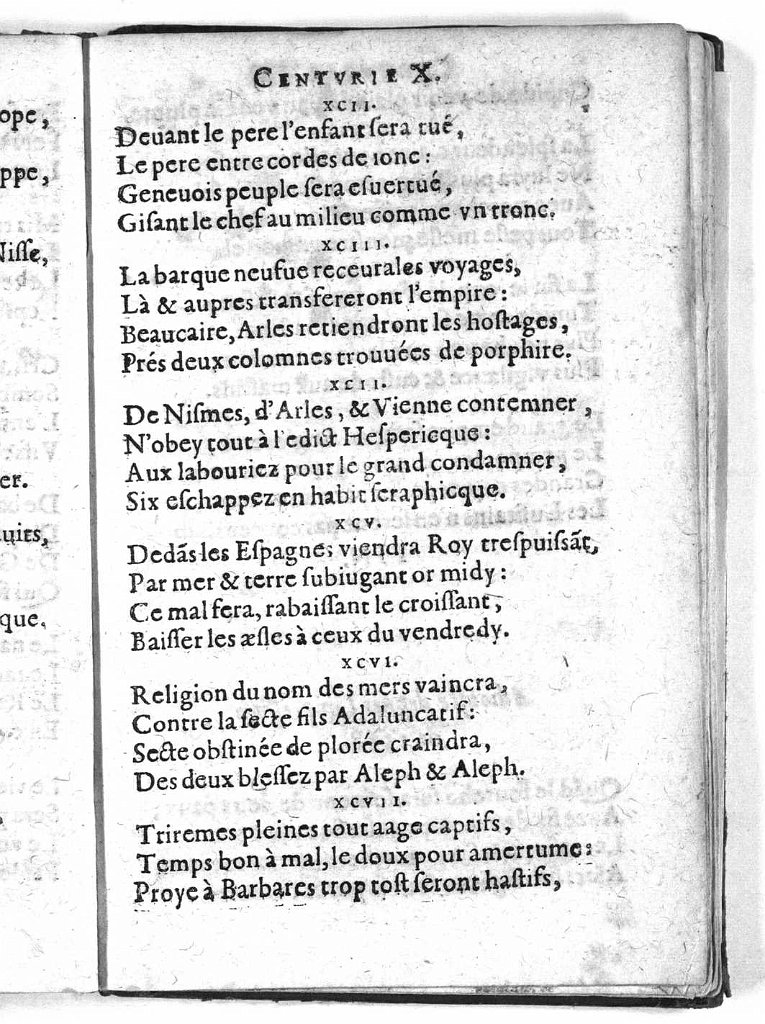 ope,
ppe,
Nisse,
er.
uits,
que.
CENTVRIE X.
XCII.
Deuant le pere l'enfant sera tué,
Le pere entre cordes de ionc:
Geneuois peuple sera esuertué,
Gisant le chef au milieu comme vn tronc.
XCIII.
La barque neufue receura les voyages,
Là & aupres transfereront l'empire:
Beaucaire, Arles retiendront les hostages,
Prés deux colomnes trouuées de porphire.
XCII.
De Nismes, d'Arles, & Vienne contemner,
N'obey tout à l'edict Hespericque:
Aux labouriez pour le grand condamner,
Six eschappez en habit seraphicque.
XCV.
Dedãs les Espagnes viendra Roy trespuissãt,
Par mer & terre subiugant or midy:
Ce mal fera, rabaissant le croissant,
Baisser les æsles à ceux du vendredy.
XCVI.
Religion du nom des mers vaincra,
Contre la secte fils Adaluncatif:
Secte obstinée de plorée craindra,
Des deux blessez par Aleph & Aleph.
XCVII.
Triremes pleines tout aage captifs,
Temps bon à mal, le doux pour amertume:
Proye à Barbares trop tost seront hastifs,